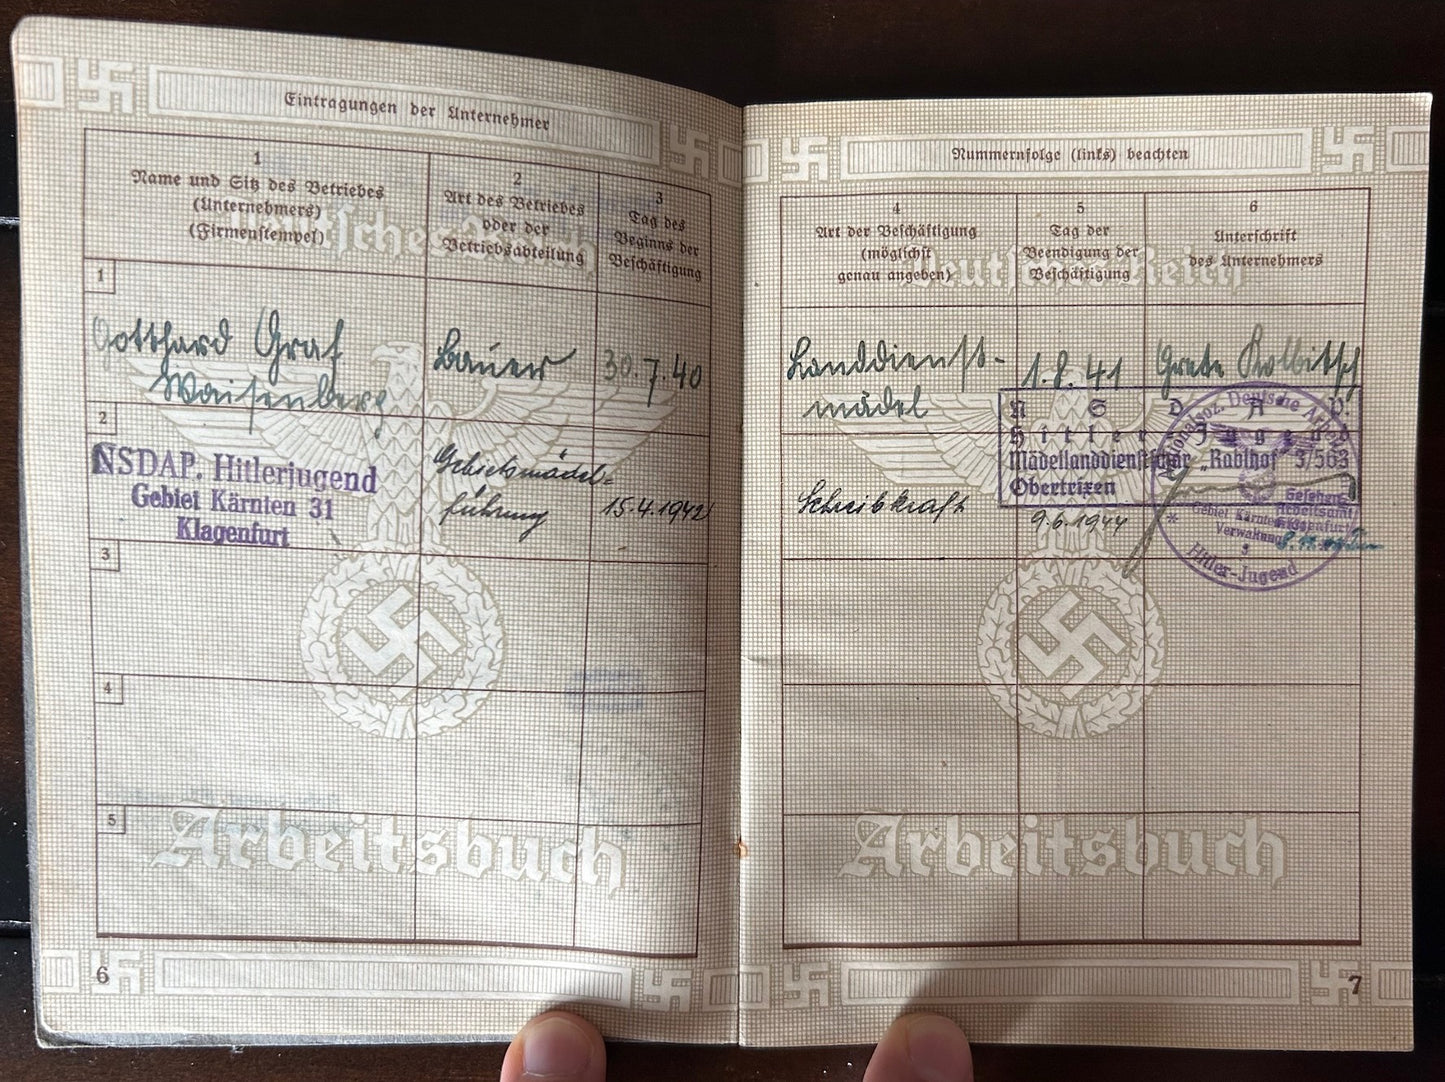 Eintragungen der Unternehmer
1
Name und Sitz des Betriebes
(Unternehmers)
(Firmenstempel)
2
Art des Betriebes
oder der
Betriebsabteilung
3
Tag des
Beginns der
Beschäftigung
Deutsches Reich
1
Gotthard Graf
Waisenberg
Bauer
30.7.40
2
NSDAP. Hitlerjugend
Gebiet Kärnten 31
Klagenfurt
Gebietsmädel-
führung
15.4.1942
3
4
5
Arbeitsbuch
6
Nummernfolge (links) beachten
4
Art der Beschäftigung
(möglichst
genau angeben)
5
Tag der
Beendigung der
Beschäftigung
6
Unterschrift
des Unternehmers
Deutsches Reich
Landdienst-
mädel
1.8.41
Grete
N S D A P.
Hitler Jugend
Mädellanddienstschar „Rablhof" 3/563
Obertrixen
Schreibkraft
9.6.1944
Nationalsoz. Deutsche Arbeit
Gebiet Kärnten
Verwaltung
3
Hitler-Jugend
Gesehen:
Arbeitsamt
Klagenfurt
Arbeitsbuch
7